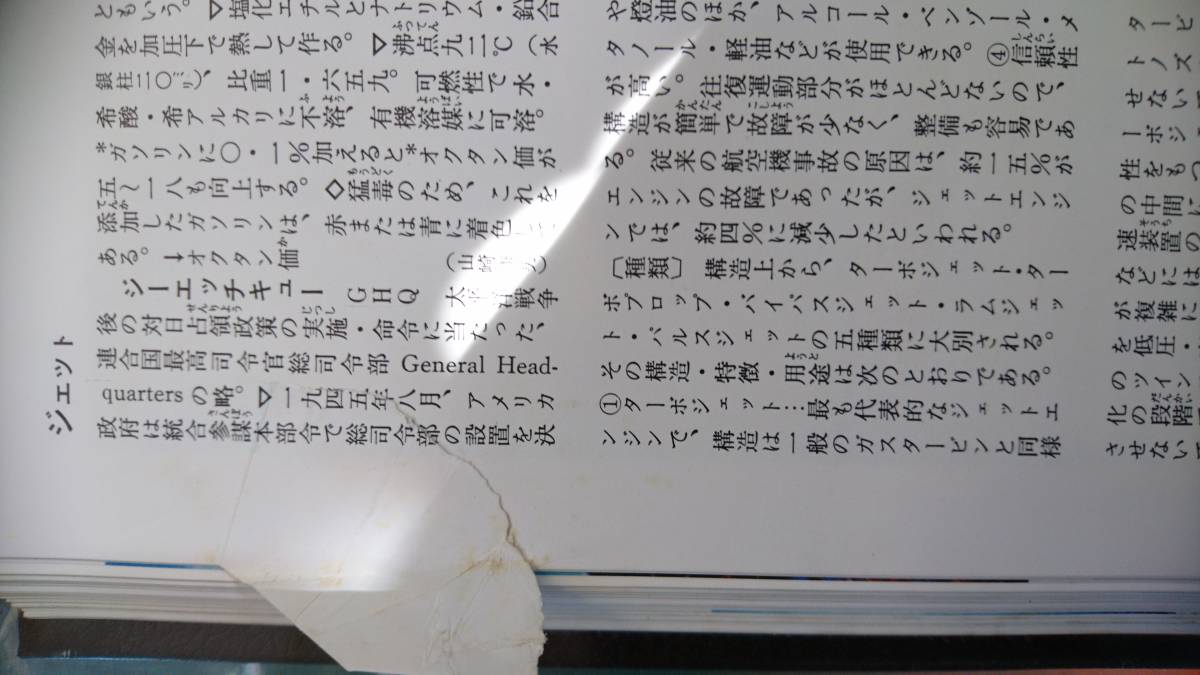 ジェット
ともいう。▽塩化エチルとナトリウム・鉛合
金を加圧下で熱して作る。▽沸点九一℃(水
銀柱一〇㍉)、比重一・六五九。可燃性で水・
希酸・希アルカリに不溶、有機溶媒に可溶。
*ガソリンに〇・一%加えると*オクタン価が
五~一八も向上する。◇猛毒のため、これを
添加したガソリンは、赤または青に着色し
ある。→オクタン価 (山崎
ジーエッチキュー GHQ 太平洋戦争
後の対日占領政策の実施・命令に当たった、
連合国最高司令官総司令部 General Head-
quarters の略。▽一九四五年八月、アメリカ
政府は統合参謀本部令で総司令部の設置を決
や燈油のほか、アルコール・ベンゾール・メ
タノール・軽油などが使用できる。④信頼性
が高い。往復運動部分がほとんどないので、
構造が簡単で故障が少なく、整備も容易であ
る。従来の航空機事故の原因は、約一五%が
エンジンの故障であったが、ジェットエンジ
ンでは、約四%に減少したといわれる。
〔種類〕 構造上から、ターボジェット・ター
ボプロップ・バイパスジェット・ラムジェッ
ト・パルスジェットの五種類に大別される。
その構造・特徴・用途は次のとおりである。
①ターボジェット…最も代表的なジェットエ
ンジンで、構造は一般のガスタービンと同様
タービ
トノズ
せない
ーボジ
性をもつ
の中間に
速装置の
などには
が複雑に
を低圧・
のツイン
化の段階
させない